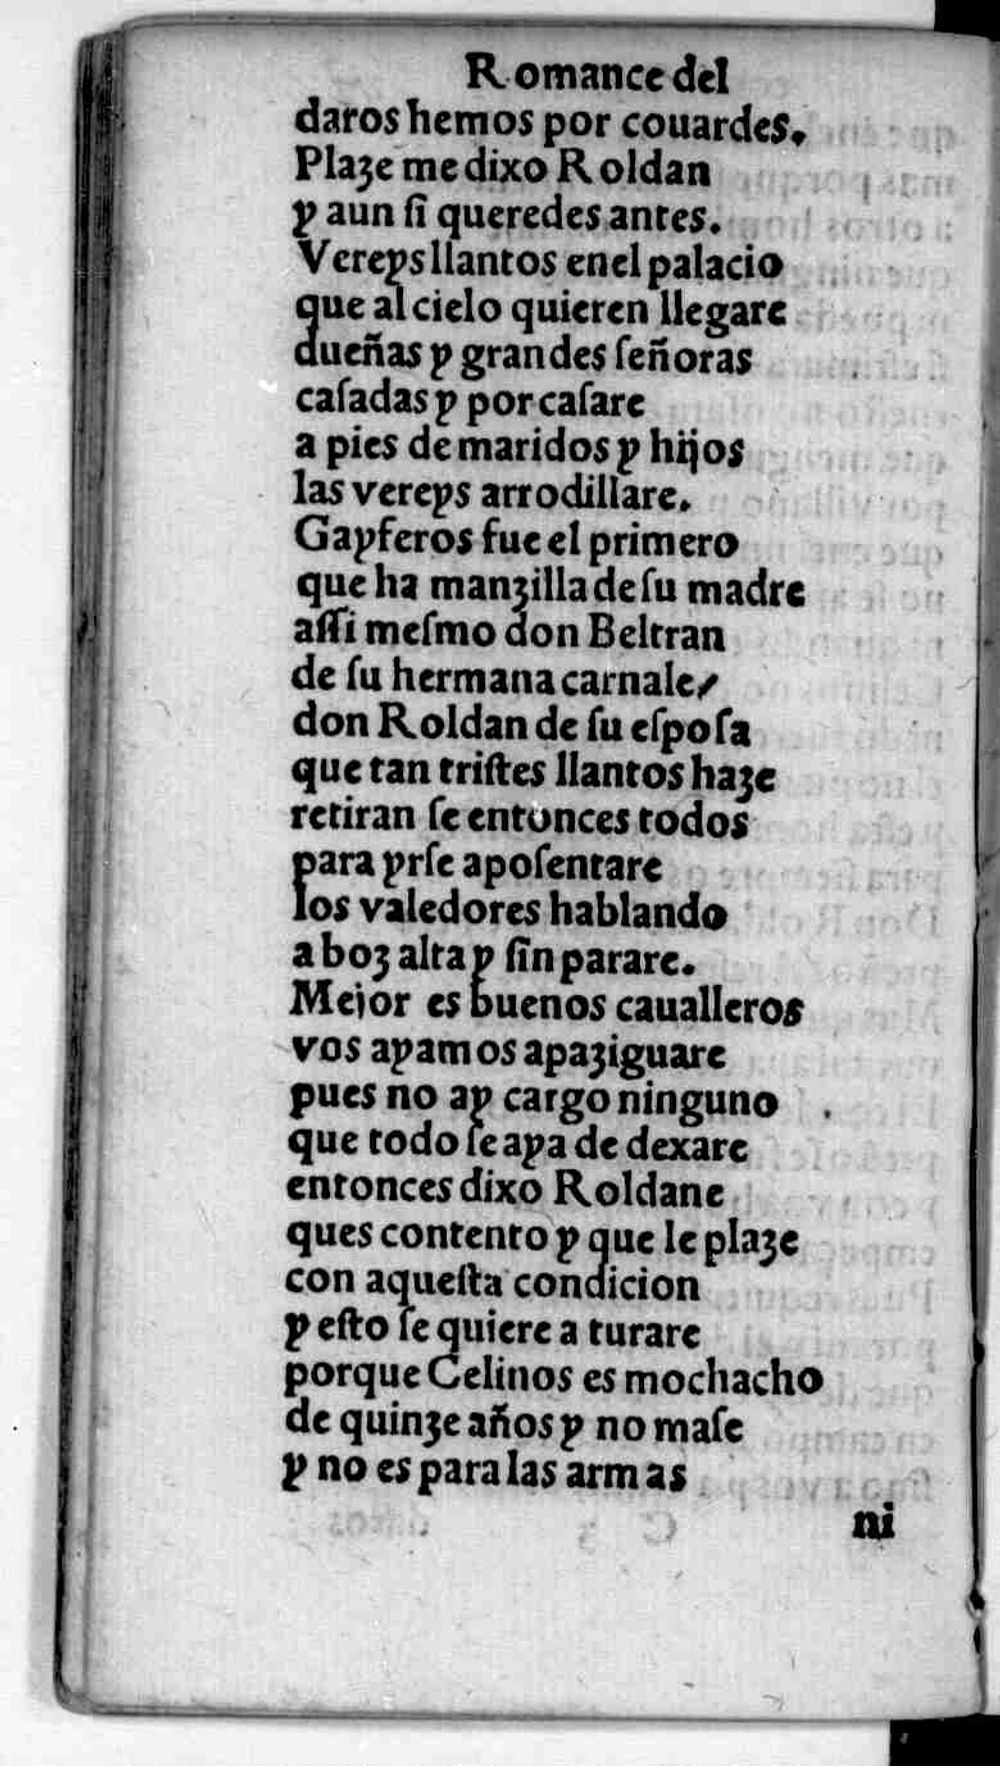 Romance del
daros hemos por couardes.
Plaze me dixo Roldan
y aun ſi queredes antes.
Vereys llantos enel palacio
que al cielo quieren llegare
dueñas y grandes ſeñoras
caſadas y por caſare
a pies de maridos y hijos
las vereys arrodillare.
Gayferos fue el primero
que ha manzilla de ſu madre
aſſi meſmo don Beltran
de ſu hermana carnale/
don Roldan de ſu eſpoſa
que tan triſtes llantos haze
retiran ſe entonces todos
para yrſe apoſentare
los valedores hablando
a boz alta y ſin parare.
Mejor es buenos caualleros
vos ayamos apaziguare
pues no ay cargo ninguno
que todo ſe aya de dexare
entonces dixo Roldane
ques contento y que le plaze
con aqueſta condicion
y eſto ſe quiere aturare
porque Celinos es mochacho
de quinze años y no maſe
y no es para las armas
ni